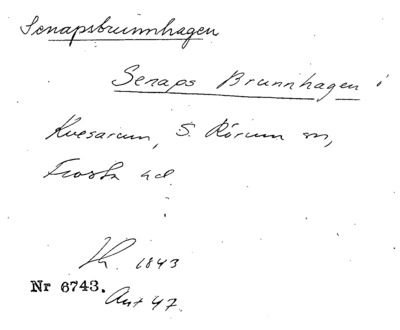 Senapsbrunnhagen
Senaps Brunnhagen i
Kvesarum, S. Rörum sn,
Frosta hd
Lh. 1843
Nr 6743.
Ant 47.